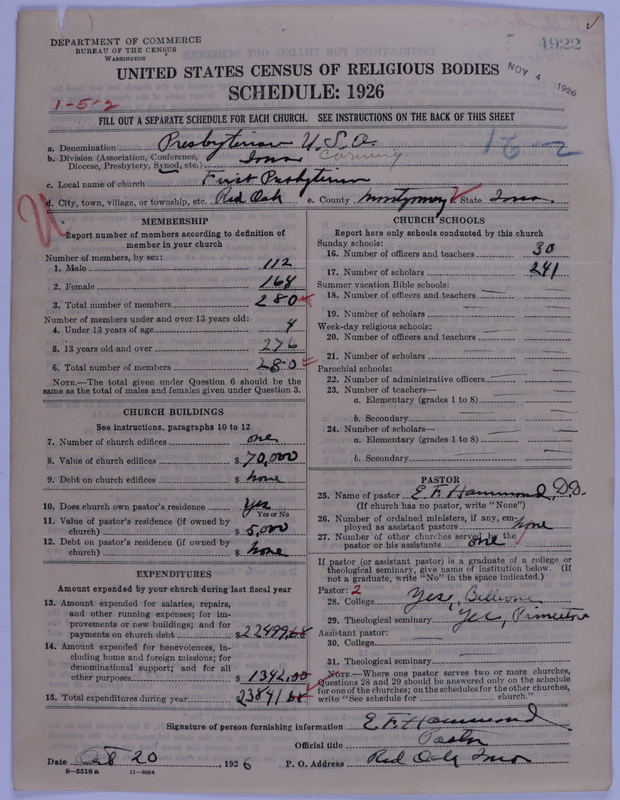 DEPARTMENT OF COMMERCE
BUREAU OF THE CENSUS
WASHINGTON
4922
NOV 4 1926
UNITED STATES CENSUS OF RELIGIOUS BODIES
SCHEDULE: 1926
1-5-2
FILL OUT A SEPARATE SCHEDULE FOR EACH CHURCH. SEE INSTRUCTIONS ON THE BACK OF THIS SHEET
a. Denomination Presbyterian U.S.A.
b. Division (Association, Conference, Diocese, Presbytery, Synod, etc.) Iowa Corning
c. Local name of church First Presbyterian
d. City, town, village, or township, etc. Red Oak e. County Montgomery State Iowa.
MEMBERSHIP
Report number of members according to definition of member in your church
Number of members, by sex:
1. Male 112
2. Female 168
3. Total number of members 280
Number of members under and over 13 years old:
4. Under 13 years of age 4
5. 13 years old and over 276
6. Total number of members 280
NOTE.—The total given under Question 6 should be the same as the total of males and females given under Question 3.
CHURCH BUILDINGS
See instructions, paragraphs 10 to 12
7. Number of church edifices one
8. Value of church edifices $ 70,000
9. Debt on church edifices $ none
10. Does church own pastor's residence yes
Yes or No
11. Value of pastor's residence (if owned by church) $ 5,000
12. Debt on pastor's residence (if owned by church) $ none
EXPENDITURES
Amount expended by your church during last fiscal year
13. Amount expended for salaries, repairs, and other running expenses; for improvements or new buildings; and for payments on church debt $ 22499.68
14. Amount expended for benevolences, including home and foreign missions; for denominational support; and for all other purposes $ 1342.00
15. Total expenditures during year $ 23841.68
CHURCH SCHOOLS
Report here only schools conducted by this church
Sunday schools:
16. Number of officers and teachers 30
17. Number of scholars 241
Summer vacation Bible schools:
18. Number of officers and teachers
19. Number of scholars
Week-day religious schools:
20. Number of officers and teachers
21. Number of scholars
Parochial schools:
22. Number of administrative officers
23. Number of teachers—
a. Elementary (grades 1 to 8)
b. Secondary
24. Number of scholars—
a. Elementary (grades 1 to 8)
b. Secondary
PASTOR
25. Name of pastor E. F. Hammond, D.D.
(If church has no pastor, write "None")
26. Number of ordained ministers, if any, employed as assistant pastors none
27. Number of other churches served by the pastor or his assistants one
If pastor (or assistant pastor) is a graduate of a college or theological seminary, give name of institution below. (If not a graduate, write "No" in the space indicated.)
Pastor: 2
28. College Yes, Bellevue
29. Theological seminary Yes, Princeton
Assistant pastor:
30. College
31. Theological seminary
NOTE.—Where one pastor serves two or more churches, Questions 28 and 29 should be answered only on the schedule for one of the churches; on the schedules for the other churches, write "See schedule for church."
Signature of person furnishing information E F Hammond
Official title Pastor
Date Oct 20, 1926 P. O. Address Red Oak Iowa
8-5518 a 11-9054